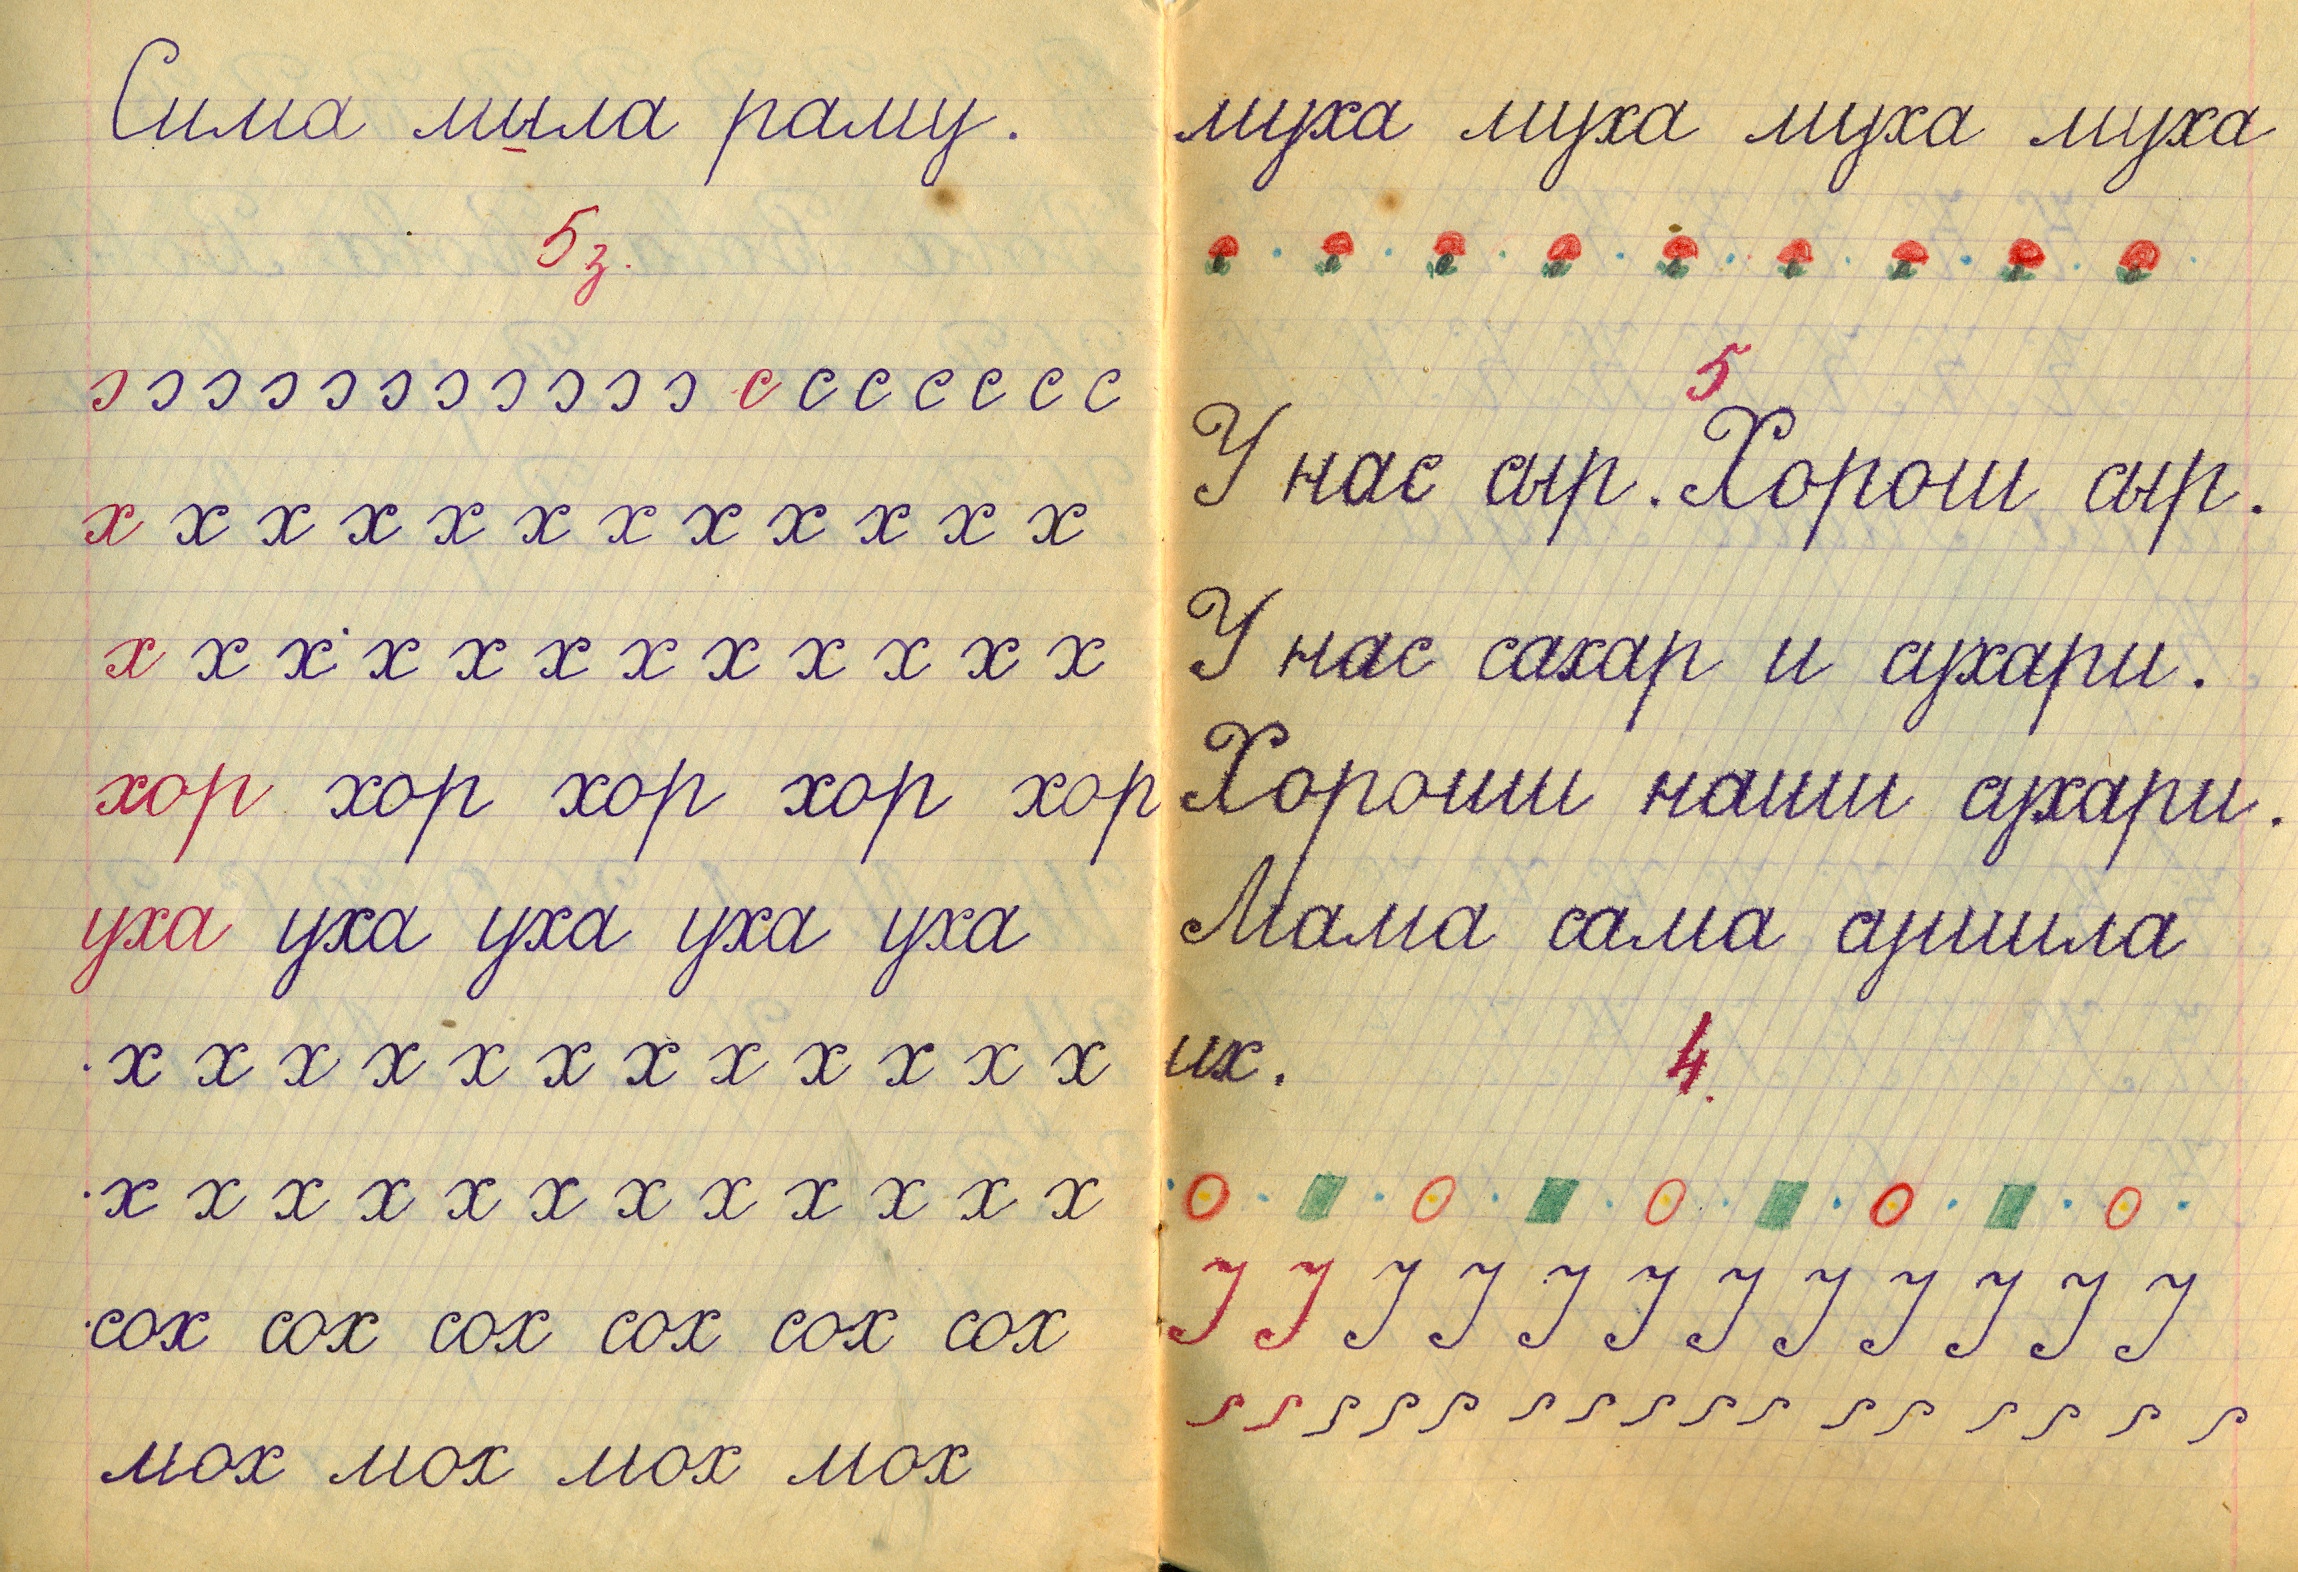 Сима мыла раму.
5з.
ɔ ɔ ɔ ɔ ɔ ɔ ɔ ɔ ɔ ɔ ɔ с с с с с с с
х х х х х х х х х х х х
х х х х х х х х х х х х
хор хор хор хор хор
уха уха уха уха уха
х х х х х х х х х х х х
х х х х х х х х х х х х
сох сох сох сох сох сох
мох мох мох мох
муха муха муха муха
5
У нас сыр. Хорош сыр.
У нас сахар и сухари.
Хороши наши сухари.
Мама сама сушила
их.
4.